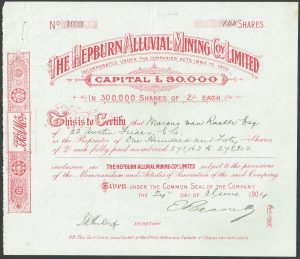 No 1602 140 SHARES.
THE HEPBURN ALLUVIAL MINING COY. LIMITED
INCORPORATED UNDER THE COMPANIES ACTS 1862 TO 1900
CAPITAL £30,000
IN 300,000 SHARES OF 2/- EACH.
This is to Certify that Marcus van Raalte Esq.
of 22 Austin Friars, E.C.
is the Proprietor of One Hundred and Forty Shares
of 2/- each fully paid numbered 277,163 to 277,302
inclusive in THE HEPBURN ALLUVIAL MINING COY. LIMITED subject to the provisions
of the Memorandum and Articles of Association of the said Company
Given UNDER THE COMMON SEAL OF THE COMPANY
THE 24th DAY OF June 1904
SECRETARY
N.B. This Certificate must be left at the Office before any Transfer of Shares can be made.